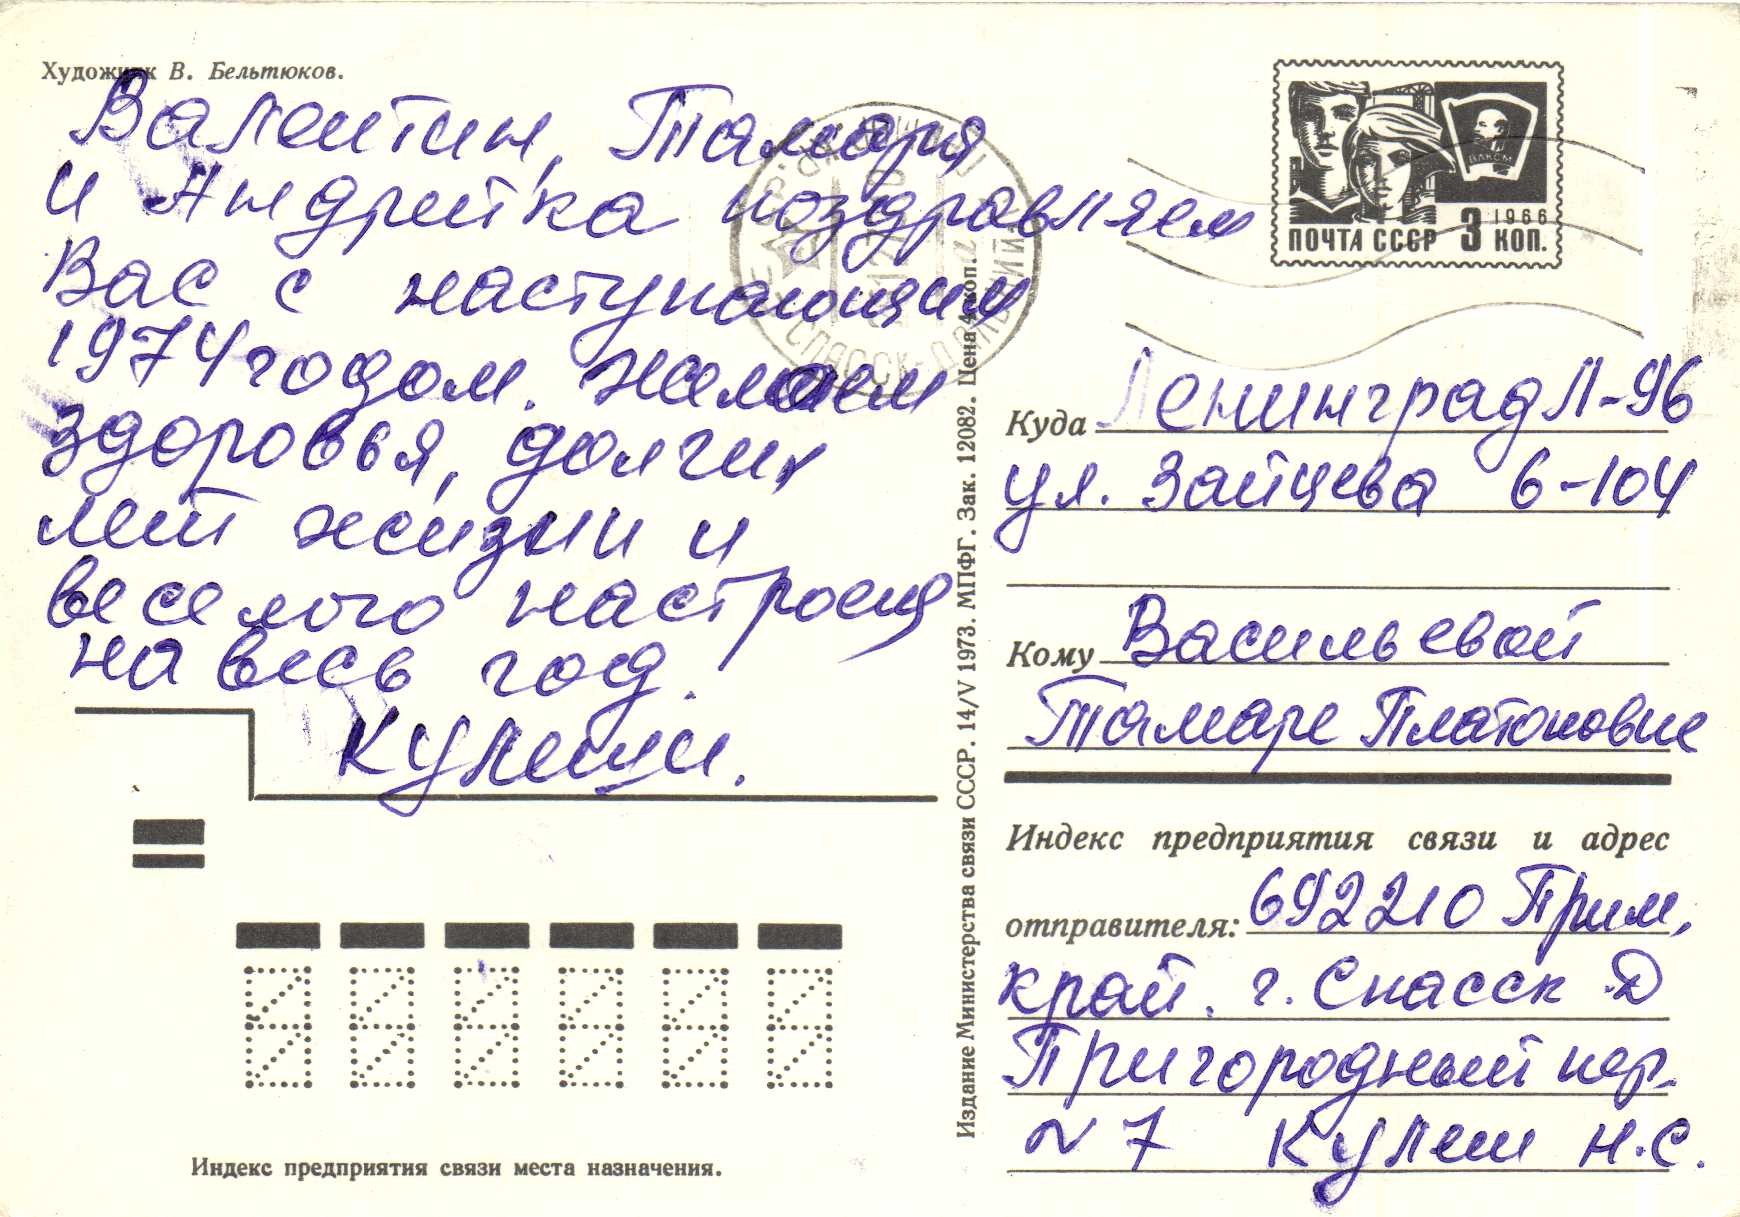 Художник В. Бельтюков.
Валентин, Тамара
и Андрейка поздравляем
Вас с наступающим
1974 годом. Желаем
здоровья, долгих
лет жизни и
веселого настроения
на весь год.
Кулеши.
Индекс предприятия связи места назначения.
Издание Министерства связи СССР. 14/V 1973. МПФГ. Зак. 12082. Цена 4 коп.
СПАССК-ДАЛЬНИЙ
ВЛКСМ
1966
ПОЧТА СССР 3 КОП.
Куда Ленинград Л-96
ул. Зайцева 6-104
Кому Васильевой
Тамаре Платоновне
Индекс предприятия связи и адрес
отправителя: 692210 Прим.
край. г. Спасск-Д
Пригородный пер.
N 7 Кулеш Н.С.